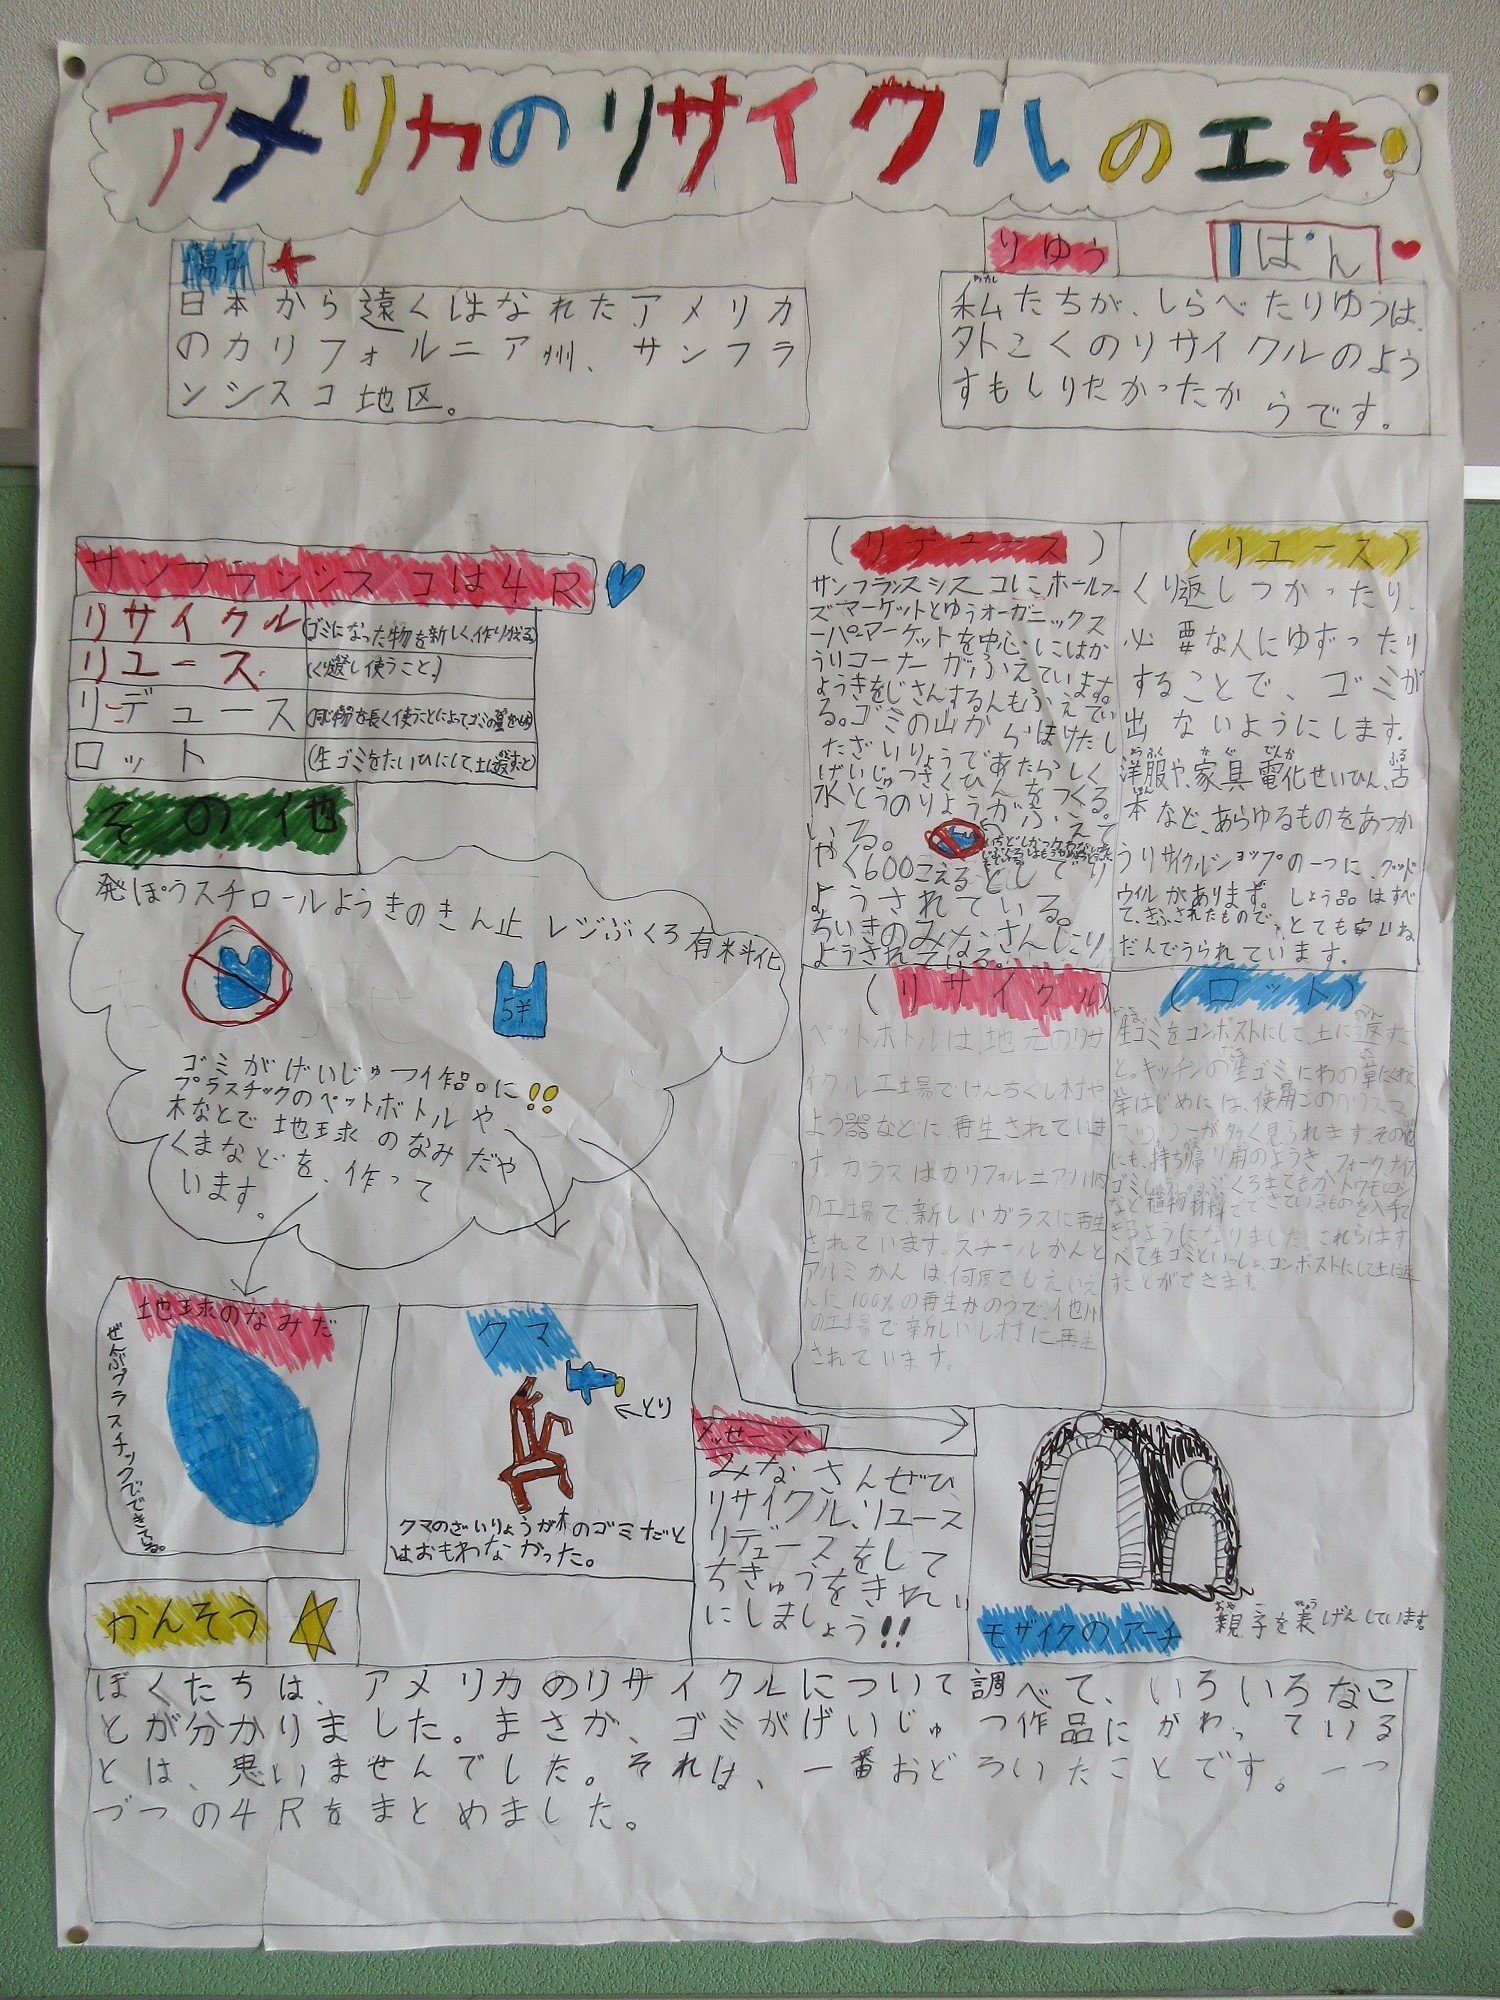 アメリカのリサイクルの工
1ぱん
りゆう
私たちが、しらべたりゆうは、
外こくのリサイクルのよう
すもしりたかったからです。
場所
日本から遠くはなれた、アメリカ
のカリフォルニア州、サンフラ
ンシスコ地区。
サンフランシスコは4R
リサイクル (ゴミになった物を新しく、作りかえる)
リユース (くり返し使うこと。)
リデュース
ロット (生ゴミをたいひにして、土に返すこと)
(リデュース)
サンフランスシスコにホールフー
ズマーケットとゆうオーガニックス
ーパーマーケットを中心にはか
りうりコーナーがふえています。
ようきをじさんする人もふえてい
る。ゴミの山からほけたし
たざいりょうであたらしく
げいじゅつさくひんをつくる。
水とうのりようがふえて
いる。
やく600こえる
ようされている。
ちいきのみなさんにり
ようされてはる。
(リユース)
くり返しつかったり、
必要な人にゆずったり
することで、ゴミが
出ないようにします。
洋服や、家具、電化せいひん、古
本など、あらゆるものをあつか
うリサイクルショップの一つに、グッド
ウイルがあります。しょう品はすべ
て、きふされたもので、とても安いね
だんでうられています。
(リサイクル)
ペットボトルは、地元のリサ
イクル工場でけんちくし材や
よう器などに、再生されていま
す。ガラスはカリフォルニア州内
の工場で、新しいガラスに再生
されています。スチールかんと
アルミかんは、何度でもえいえ
んに100%の再生かのうで、他州
の工場で新しいし材に再生
されています。
(ロット)
生ゴミをコンポストにして、土に返すこ
と。キッチンの生ゴミ、にわの草にくわえ
年はじめには、使用ごのクリスマ
スツリーが多く見られます。その他
にも、持ち帰り用のようき、フォーク、ナイフ
など植物材料でできているものを入手で
きるようになりました。これらはす
べて生ゴミといっしょ、コンポストにして土に返
すことができます。
その他
発ぽうスチロールようきのきん止 レジぶくろ有料化
5¥
ゴミがげいじゅつ作品に!!
プラスチックのペットボトルや
木なとで地球のなみだや
くまなどを、作って
います。
地球のなみだ
ぜんぶプラスチックでできてる。
クマ
←とり
クマのざいりょうが木のゴミだと
はおもわなかった。
メッセージ
みなさんぜひ
リサイクル、リユース
リデュースをして
ちきゅうをきれい
にしましょう!!
モザイクのアーチ
親子を表げんしています。
かんそう
ぼくたちは、アメリカのリサイクルについて調べて、いろいろなこ
とが分かりました。まさか、ゴミがげいじゅつ作品にかわっている
とは、思いませんでした。それは、一番おどろいたことです。一つ
づつの4Rをまとめました。